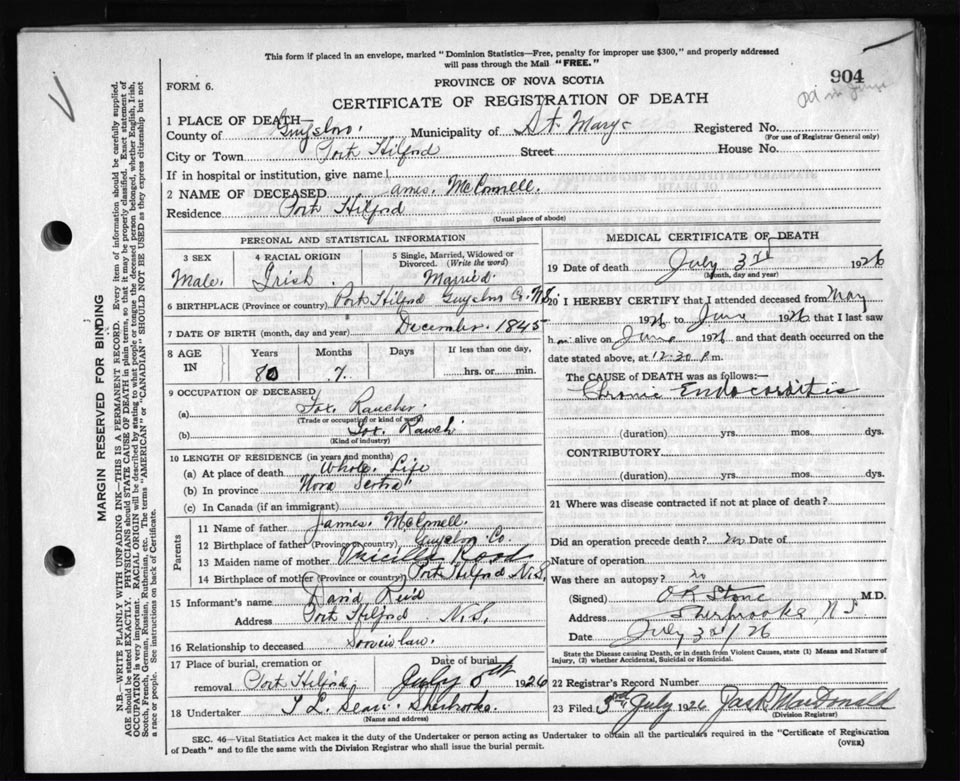 This form if placed in an envelope, marked "Dominion Statistics—Free, penalty for improper use $300," and properly addressed
will pass through the Mail "FREE."
FORM 6.
PROVINCE OF NOVA SCOTIA
904
CERTIFICATE OF REGISTRATION OF DEATH
1 PLACE OF DEATH—
County of Guysboro. Municipality of St Marys Registered No.
(For use of Registrar General only)
City or Town Port Hilford Street House No.
If in hospital or institution, give name
2 NAME OF DECEASED James. McConnell.
Residence Port Hilford
(Usual place of abode)
PERSONAL AND STATISTICAL INFORMATION
3 SEX 4 RACIAL ORIGIN 5 Single, Married, Widowed or Divorced. (Write the word)
Male. Irish. Married.
6 BIRTHPLACE (Province or country) Port Hilford Guysboro Co. N.S.
7 DATE OF BIRTH (month, day and year) December. 1845
8 AGE IN Years Months Days If less than one day,
80 7. hrs. or min.
9 OCCUPATION OF DECEASED
(a) Fox. Rancher.
(Trade or occupation or kind of work)
(b) Fox. Ranch
(Kind of industry)
10 LENGTH OF RESIDENCE (in years and months)
(a) At place of death Whole. Life
(b) In province Nova Scotia
(c) In Canada (if an immigrant)
Parents
11 Name of father James. McConnell.
12 Birthplace of father (Province or country) Guysboro Co.
13 Maiden name of mother
14 Birthplace of mother (Province or country) Port Hilford N.S.
15 Informant's name David Reid
Port Hilford N.S.
16 Relationship to deceased Son in law.
17 Place of burial, cremation or Date of burial
removal Port Hilford. July 5th 1926
18 Undertaker Sherbrooke.
(Name and address)
MEDICAL CERTIFICATE OF DEATH
19 Date of death July 3rd 1926
(Month, day and year)
20 I HEREBY CERTIFY that I attended deceased from May
1926 to June 1926 that I last saw
him alive on June 1926 and that death occurred on the
date stated above, at 12.30 p.m.
The CAUSE of DEATH was as follows:—
Chronic Endocarditis
(duration) yrs. mos. dys.
CONTRIBUTORY
(duration) yrs. mos. dys.
21 Where was disease contracted if not at place of death?
Did an operation precede death? no Date of
Nature of operation
Was there an autopsy? no
(Signed) M.D.
Address Sherbrooke N S
Date July 3rd/26
State the Disease causing Death, or in death from Violent Causes, state (1) Means and Nature of
Injury, (2) whether Accidental, Suicidal or Homicidal.
22 Registrar's Record Number
23 Filed 3rd July 1926 Jas. R. MacDonald
(Division Registrar)
SEC. 46—Vital Statistics Act makes it the duty of the Undertaker or person acting as Undertaker to obtain all the particulars required in the "Certificate of Registration
of Death" and to file the same with the Division Registrar who shall issue the burial permit.
(OVER)
MARGIN RESERVED FOR BINDING
N.B.—WRITE PLAINLY WITH UNFADING INK—THIS IS A PERMANENT RECORD. Every item of information should be carefully supplied.
AGE should be stated EXACTLY. PHYSICIANS should STATE CAUSE OF DEATH in plain terms, so that it may be properly classified. Exact statement of
OCCUPATION is very important. RACIAL ORIGIN will be described by stating to what people or tongue the deceased person belonged, whether English, Irish,
Scotch, French, German, Russian, Ruthenian, etc. The terms "AMERICAN" or "CANADIAN" SHOULD NOT BE USED as they express citizenship but not
a race or people. See instructions on back of Certificate.